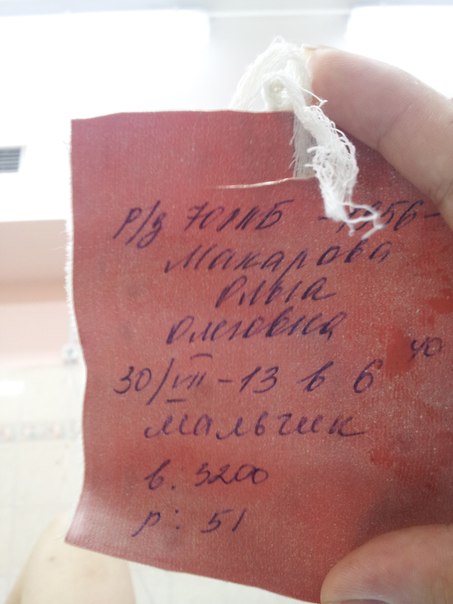 р/д 7ОМБ
Макарова
Ольга
Олеговна
30/VII-13 в 6 40
мальчик
в. 3200
р: 51